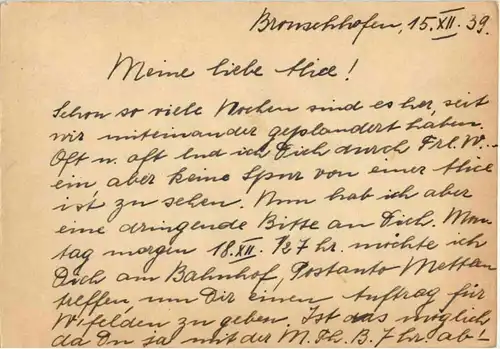 Bronschhofen, 15. XII. 39.
Meine liebe Alice!
Schon so viele Wochen sind es her, seit
wir miteinander geplaudert haben.
Oft u. oft lud ich Dich durch Frl. W.
ein, aber keine Spur von einer Alice
ist zu sehen. Nun hab ich aber
eine dringende Bitte an Dich. Mon-
tag morgen 18. XII. 1/2 7 hr. möchte ich
Dich am Bahnhof, Postauto Mettlen
treffen, um Dir einen Auftrag für
W'felden zu geben. Ist das möglich
da Du ja mit der M. Th. B. 7 hr ab-